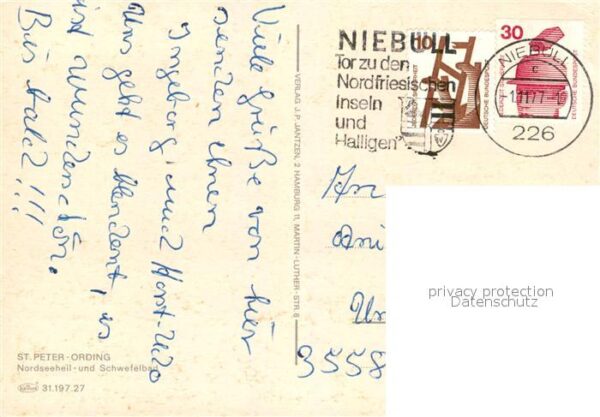 Viele Grüße von hier
senden Ihnen
Ingeborg und Horst-Udo
Uns geht es blendent, es
ist wunderschön.
Bis bald!!!
ST. PETER-ORDING
Nordseeheil- und Schwefelbad
31.197.27
VERLAG J. P. JANTZEN, 2 HAMBURG 11, MARTIN-LUTHER-STR. 8
NIEBÜLL
Tor zu den
Nordfriesischen
Inseln
und
Halligen"
10
DEUTSCHE BUNDESPOST
30
DEUTSCHE BUNDESPOST
NIEBÜLL
c
-1.11.77-1
226
An
3558
privacy protection
Datenschutz